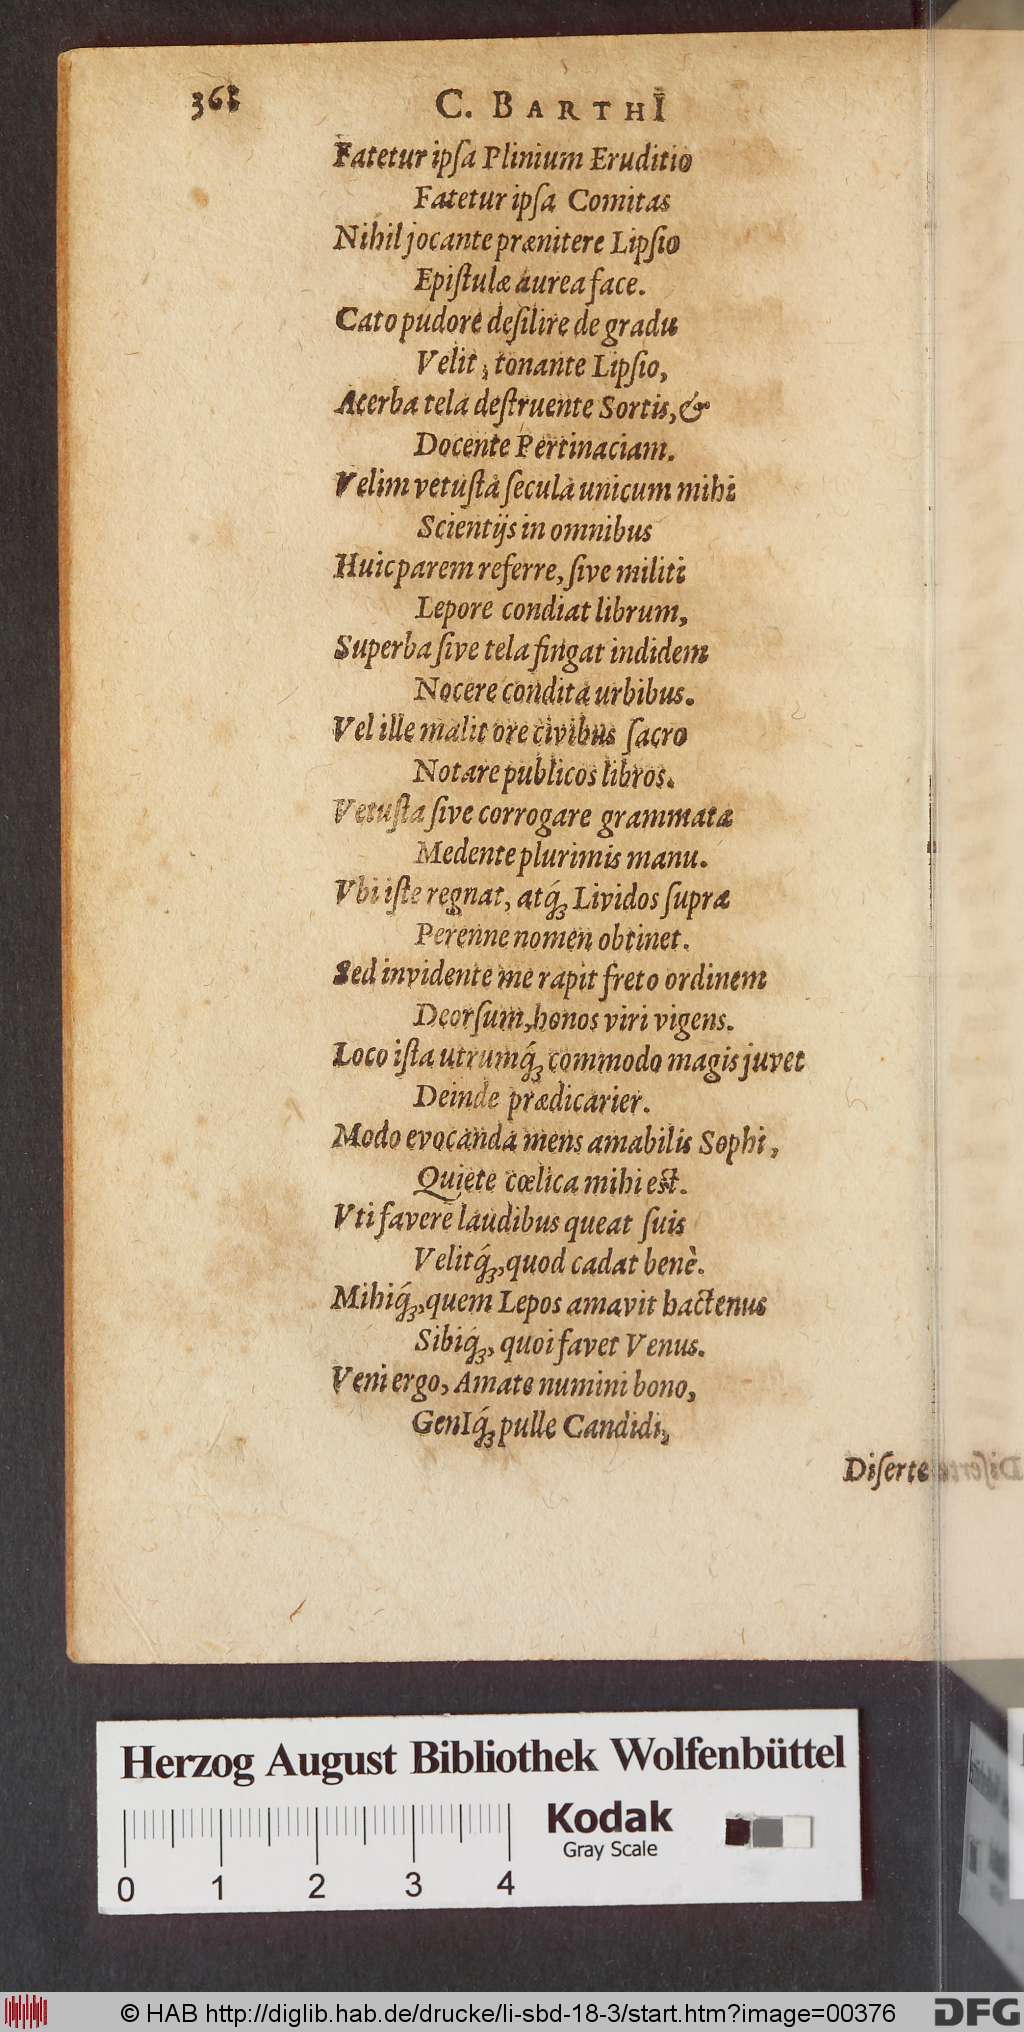 368
C. BARTHI
Fatetur ipſa Plinium Eruditio
Fatetur ipſa Comitas
Nihil jocante prænitere Lipſio
Epiſtulæ aurea face.
Cato pudore deſilire de gradu
Velit, tonante Lipſio,
Acerba tela deſtruente Sortis, &
Docente Pertinaciam.
Velim vetuſta ſecula unicum mihi
Scientijs in omnibus
Huic parem referre, ſive militi
Lepore condiat librum,
Superba ſive tela fingat indidem
Nocere condita urbibus.
Vel ille malit ore civibus ſacro
Notare publicos libros.
Vetuſta ſive corrogare grammata
Medente plurimis manu.
Vbi iſte regnat, atq́ꝫ Lividos ſupra
Perenne nomen obtinet.
Sed invidente me rapit freto ordinem
Deorſum, honos viri vigens.
Loco iſta utrumq́ꝫ commodo magis juvet
Deinde prædicarier.
Modo evocanda mens amabilis Sophi,
Quiete cœlica mihi est.
Vti favere laudibus queat ſuis
Velitq́ꝫ, quod cadat benè.
Mihiq́ꝫ, quem Lepos amavit hactenus
Sibiq́ꝫ, quoi favet Venus.
Veni ergo, Amate numini bono,
GenIq́ꝫ pulle Candidi,
Diſerte
Herzog August Bibliothek Wolfenbüttel
Kodak
Gray Scale
0 1 2 3 4
© HAB http://diglib.hab.de/drucke/li-sbd-18-3/start.htm?image=00376
DFG